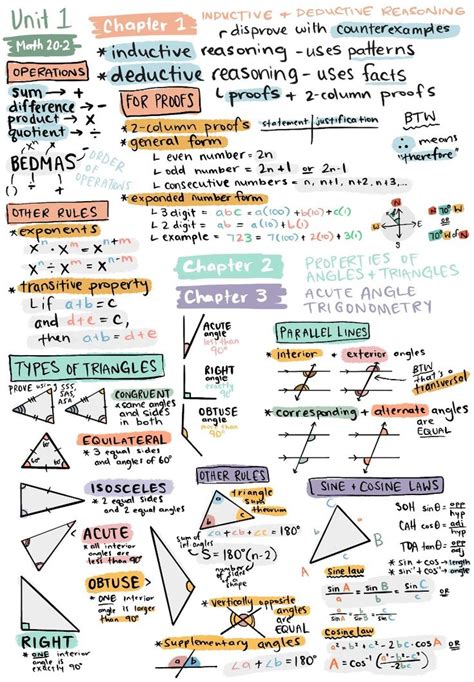 Unit 1
Math 20-2
Chapter 1
INDUCTIVE + DEDUCTIVE REASONING
disprove with counterexamples
* inductive reasoning - uses patterns
* deductive reasoning - uses facts
↳ proofs + 2-column proofs
OPERATIONS
sum → +
difference → -
product → ×
quotient → ÷
BEDMAS
ORDER OF OPERATIONS
FOR PROOFS
* 2-column proofs
statement | justification
* general form
↳ even number = 2n
↳ odd number = 2n+1 or 2n-1
↳ consecutive numbers = n, n+1, n+2, n+3...
* expanded number form
↳ 3 digit = abc = a(100) + b(10) + c(1)
↳ 2 digit = ab = a(10) + b(1)
↳ example = 723 = 7(100) + 2(10) + 3(1)
BTW
∴ means
"therefore"
N
W
E
S
N 70° W
or
70° W of N
OTHER RULES
* exponents
xⁿ · xᵐ = xⁿ⁺ᵐ
xⁿ ÷ xᵐ = xⁿ⁻ᵐ
* transitive property
↳ if a+b = c
and d+e = c,
then a+b = d+e
Chapter 2
PROPERTIES OF
ANGLES + TRIANGLES
Chapter 3
ACUTE ANGLE
TRIGONOMETRY
ACUTE
angle
less than
90°
RIGHT
angle
exactly
90°
OBTUSE
angle
more than
90°
PARALLEL LINES
* interior + exterior angles
BTW
that's a
transversal
* corresponding + alternate angles
are
EQUAL
TYPES OF TRIANGLES
PROVE using SSS,
SAS,
ASA
CONGRUENT
* same angles
and sides
in both
EQUILATERAL
* 3 equal sides
and angles of 60°
60°
60°
60°
ISOSCELES
* 2 equal sides
and 2 equal angles
ACUTE
* all interior
angles are
less than 90°
OBTUSE
* ONE interior
angle is larger
than 90°
RIGHT
* ONE interior
angle is
exactly 90°
OTHER RULES
* triangle
sum
theorum
a
b
c
∠a + ∠b + ∠c = 180°
sum of
int. angles
S = 180°(n-2)
number of
sides of
a shape
* vertically opposite
angles
are
EQUAL
* supplementary angles
a
b
∠a + ∠b = 180°
SINE + COSINE LAWS
A
B
C
SOH sinθ = opp/hyp
CAH cosθ = adj/hyp
TOA tanθ = opp/adj
* sin + cos → length
* sin⁻¹ + cos⁻¹ → angle
Sine law
sin A/a = sin B/b = sin C/c
OR
a/sin A = b/sin B = c/sin C
Cosine law
a² = b² + c² - 2bc · cos A OR
A = cos⁻¹ (a² - b² - c² / -2bc)